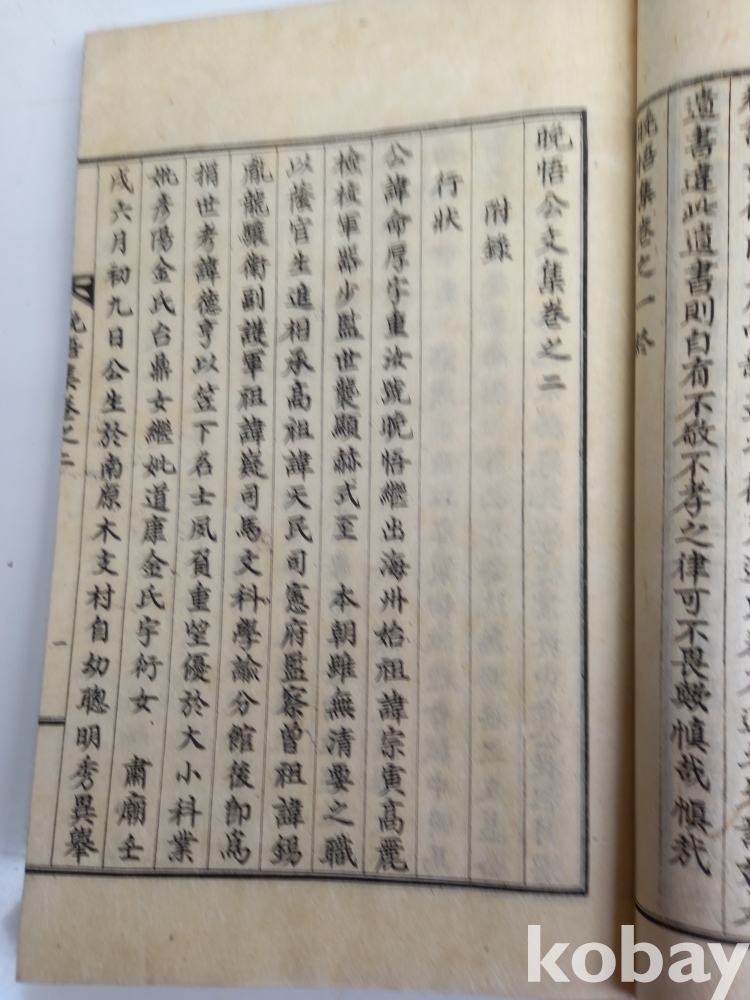 遺書違此遺書則自有不敬不孝之律可不畏歟愼哉愼哉
晩悟集卷之一終
晩悟公文集卷之二
附錄
行狀
公諱命厚字重汝號晩悟繼出海州始祖諱宗寅高麗
檢校軍器少監世襲顯赫式至 本朝雖無清要之職
以蔭官生進相承高祖諱天民司憲府監察曾祖諱錫
胤龍驤衛副護軍祖諱嶷司馬文科學諭分館後卽爲
捐世考諱德亨以笠下名士夙負重望優於大小科業
妣彦陽金氏台鼎女繼妣道康金氏宇衍女 肅廟壬
戌六月初九日公生於南原木支村自幼聰明秀異擧
晩悟集卷之二 一
kobay